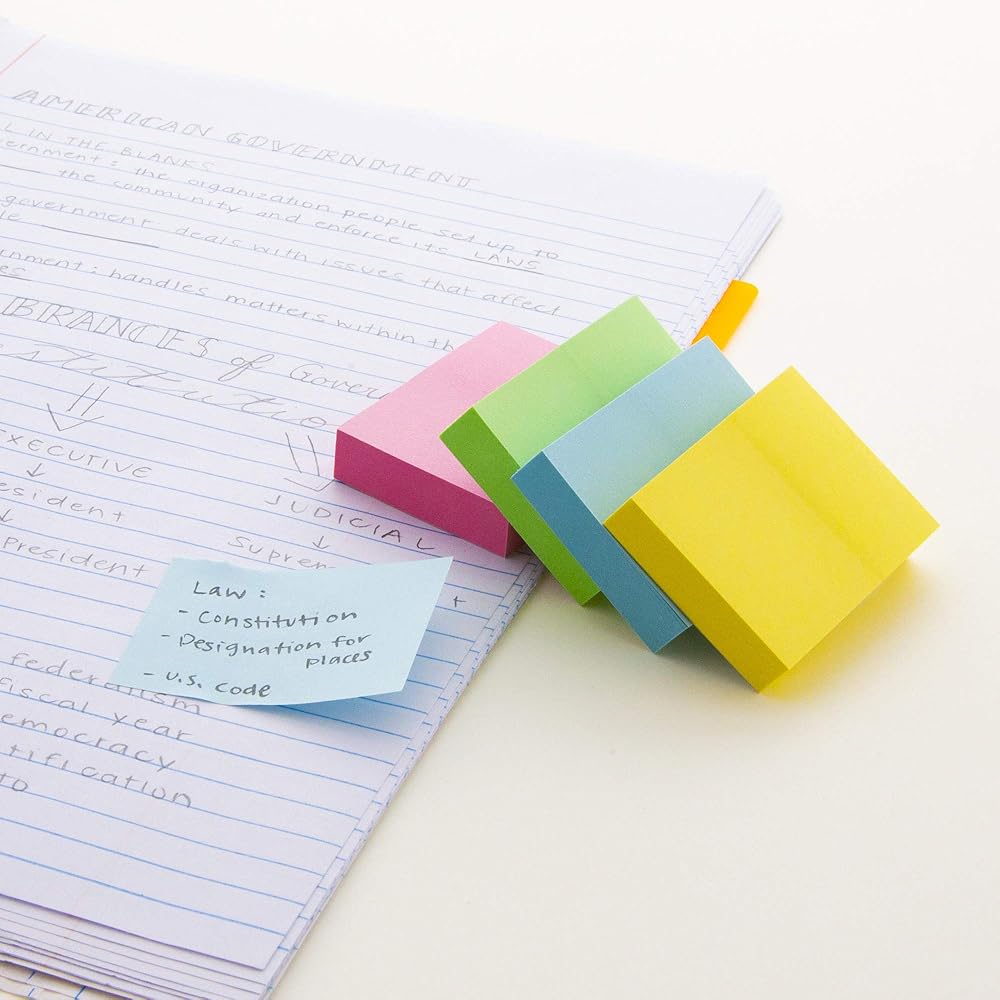 AMERICAN GOVERNMENT
L IN THE BLANKS
ernment: the organization people set up to
the community and enforce its LAWS
government deals with issues that affect
nment: handles matters within th
BRANCHES of Gover
EXECUTIVE
JUDICIAL
esident
Suprem
President
t
Law:
- Constitution
- Designation for
places
- U.S. Code
federalism
fiscal year
emocracy
tification
to